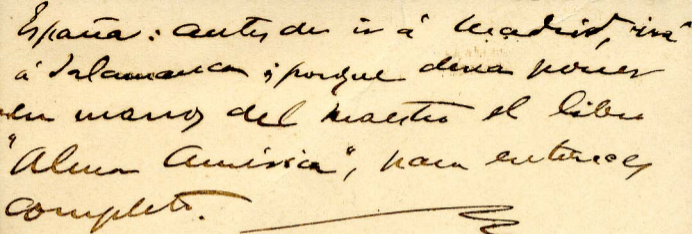 España: antes de ir á Madrid, irá
á Salamanca; porque desea poner
en manos del maestro el libro
"Alma América", para entonces
completo.